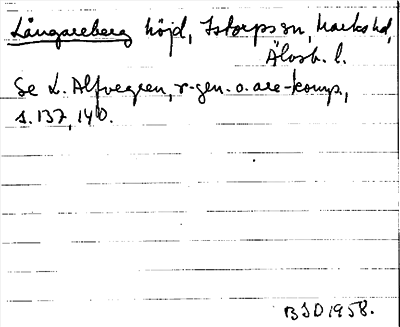 Långareberg höjd, Istorps sn, Marks hd,
Älvsb. l.
Se L. Alfvegren, r-gen. o. are-komp.,
s. 137, 140.
BSD 1958.